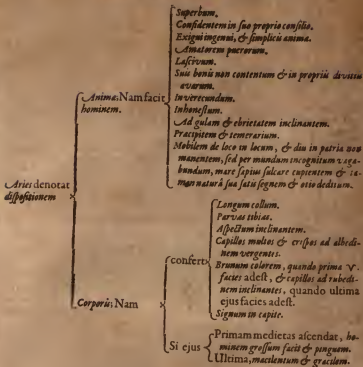 Superbum.
Confidentem in suo proprio consilio.
Exigui ingenii, & simplicis animæ.
Amatorem puerorum.
Lascivum.
Suis bonis non contentum & in propriis divitiis
avarum.
Animæ: Nam facit
hominem.
Inverecundum.
Inhonestum.
Ad gulam & ebrietatem inclinantem.
Præcipitem & temerarium.
Mobilem de loco in locum, & diu in patria non
manentem, sed per mundum incognitum vaga-
bundum, mare sæpius sulcare cupientem & ta-
men naturâ sua satis segnem & otio deditum.
Aries denotat
dispositionem
Corporis: Nam
confert
Longum collum.
Parvas tibias.
Aspectum inclinantem.
Capillos multos & crispos ad albedi-
nem vergentes.
Brunum colorem, quando prima ♈.
facies adest, & capillos ad rubedi-
nem inclinantes, quando ultima
ejus facies adest.
Signum in capite.
Si ejus
Primam medietas ascendat, ho-
minem grossum facit & pinguem.
Ultima, macilentum & gracilem.